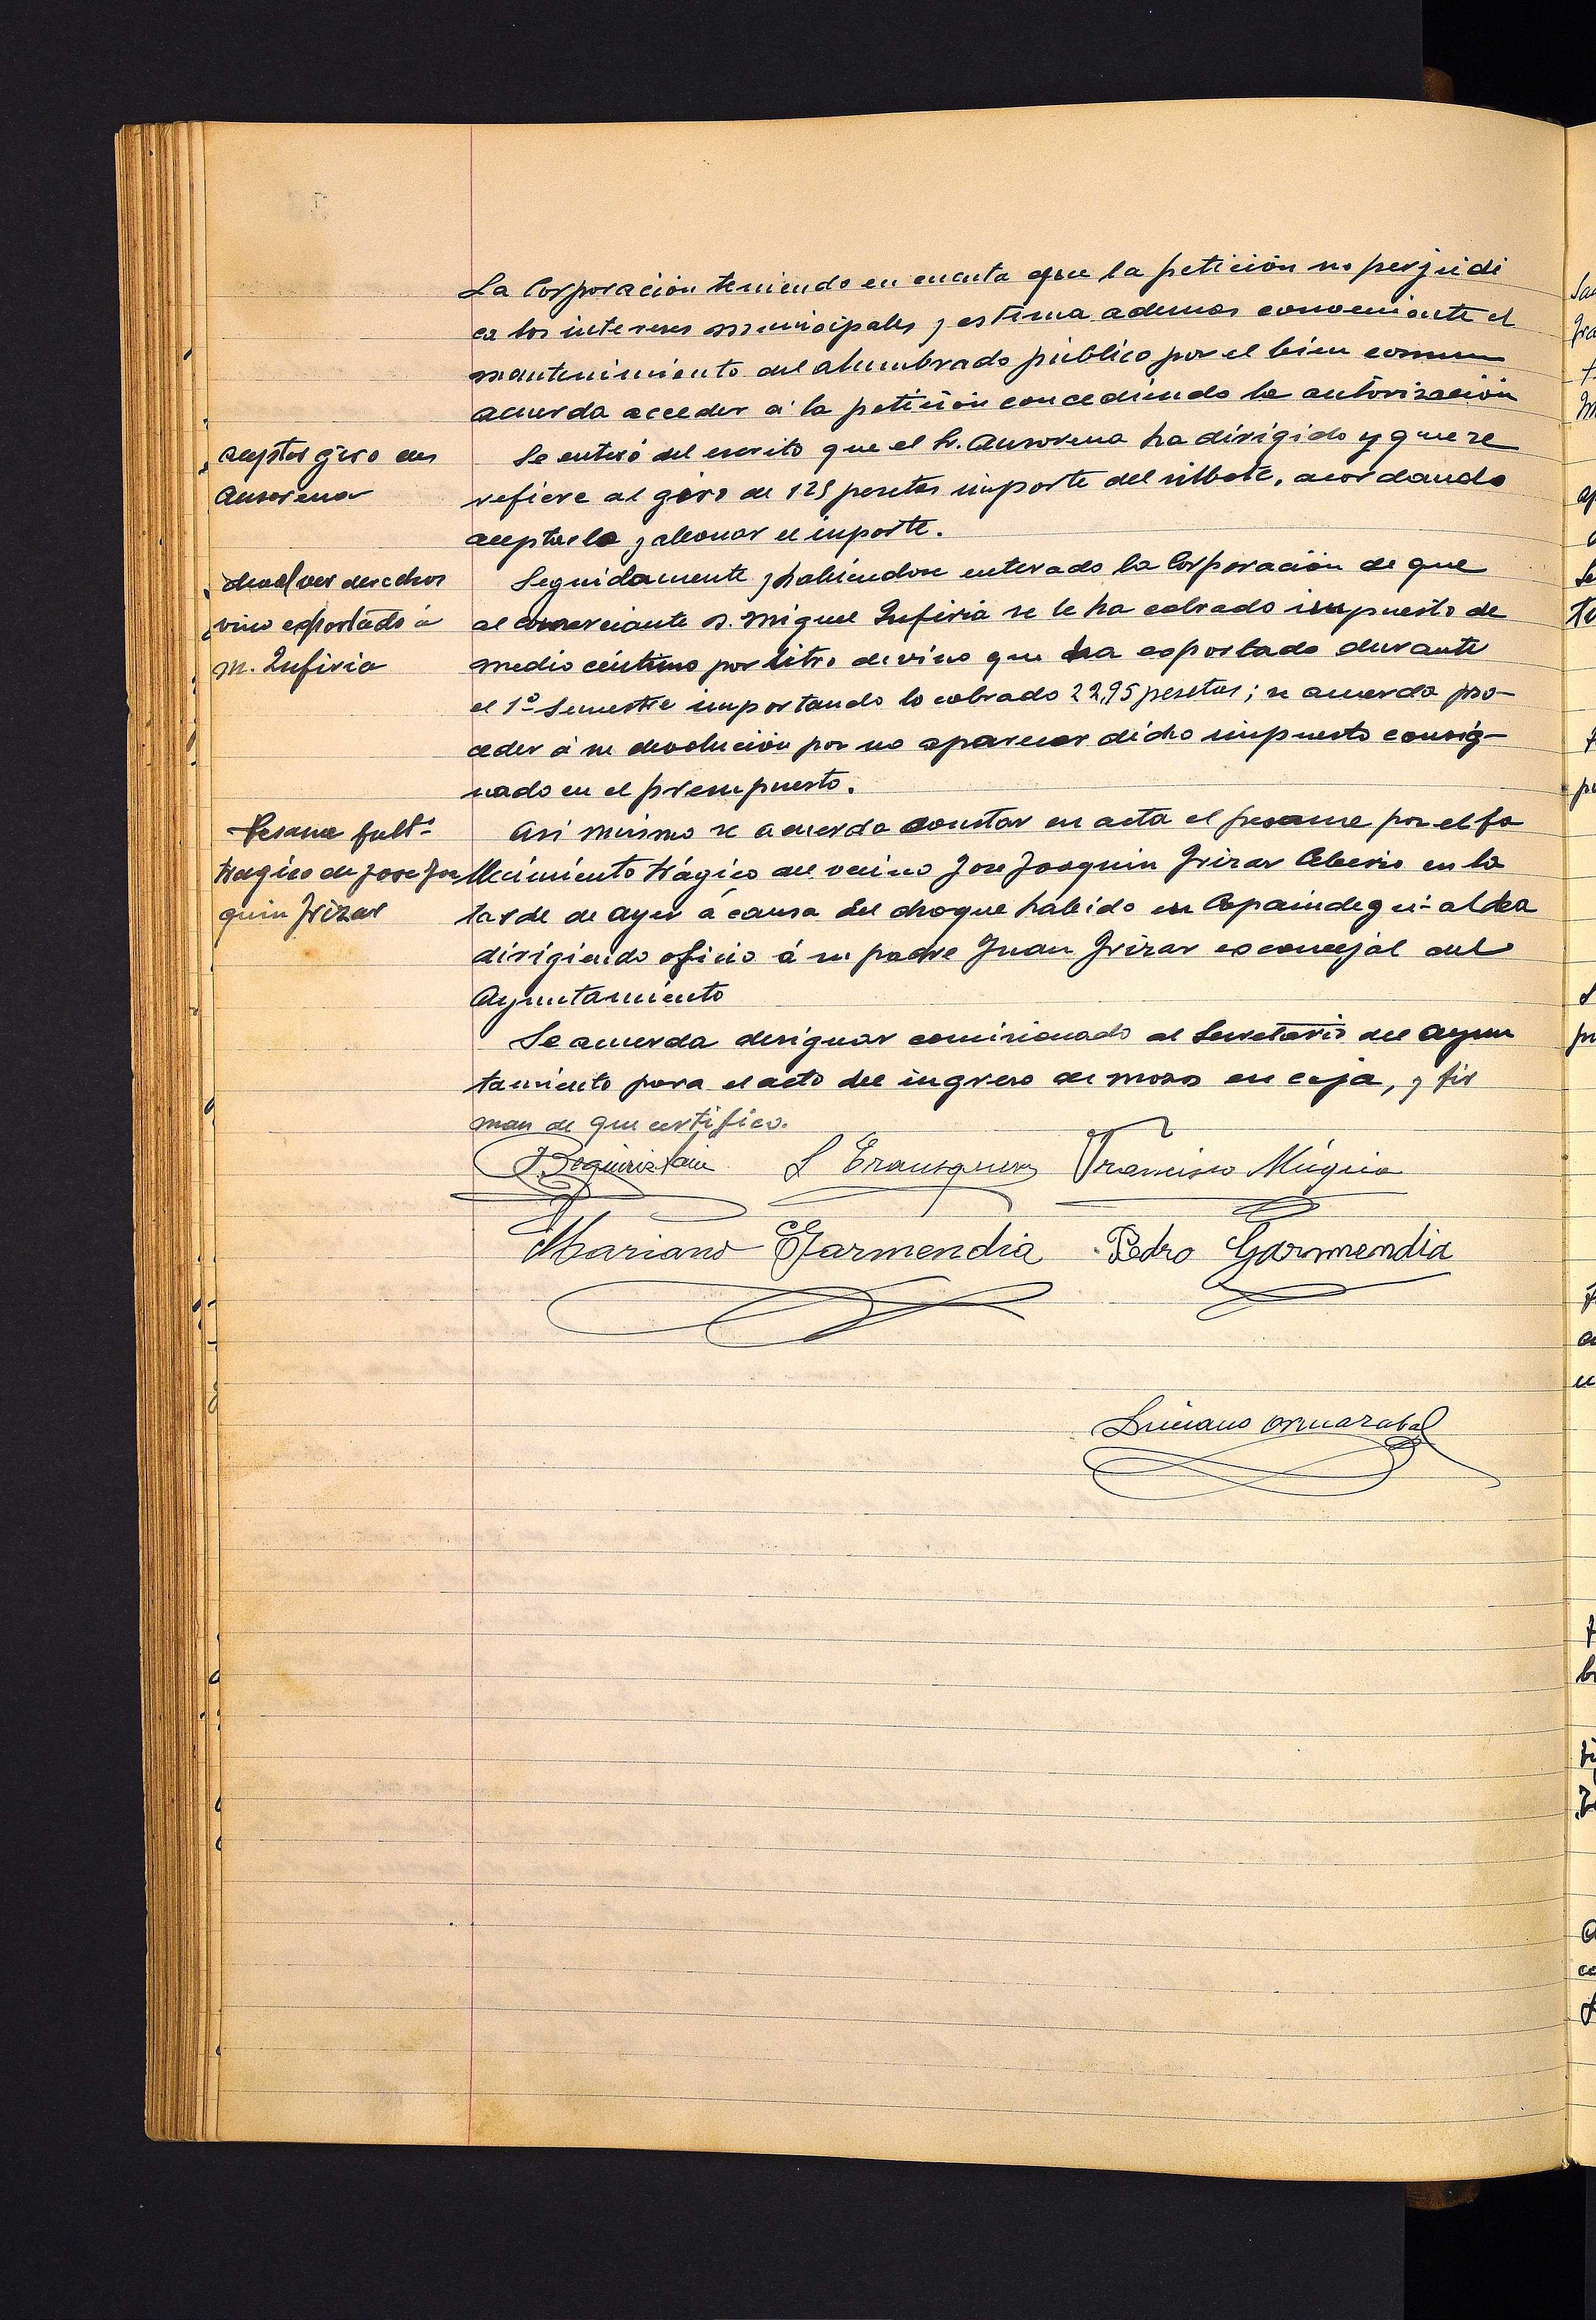 La Corporación teniendo en cuenta que la petición no perjudi
ca los intereses municipales y estima ademas conveniente el
mantenimiento del alumbrado público por el bien comun
acuerda acceder á la petición concediendo la autorización
aceptar giro de
Ansorena
Se enteró del escrito que el Sr. Ansorena ha dirigido y que se
refiere al giro de 125 pesetas importe del silbote, acordando
aceptarlo y abonar el importe.
devolver derechos
vino exportado á
M. Zufiria
Seguidamente y habiendose enterado la Corporación de que
al comerciante D. Miguel Zufiria se le ha cobrado impuesto de
medio centimo por litro de vino que ha exportado durante
el 1º Semestre importando lo cobrado 22,95 pesetas; se acuerda pro-
ceder á su devolución por no aparecer dicho impuesto consig-
nado en el presupuesto.
Pesame fallº
tragico de Jose Joa
quin Irizar
Asi mismo se acuerda constar en acta el pesame por el fa
llecimiento trágico del vecino Jose Joaquin Irizar Ceberio en la
tarde de ayer á causa del choque habido en Capaindegui-aldea
dirigiendo oficio á su padre Juan Irizar exconcejal del
Ayuntamiento
Se acuerda designar comisionado al Secretario del Ayun
tamiento para el acto del ingreso de mozos en caja, y fir
man de que certifico.
Beguiristain Francisco Múgica
Mariano Garmendia Pedro Garmendia
Luciano Ormazabal